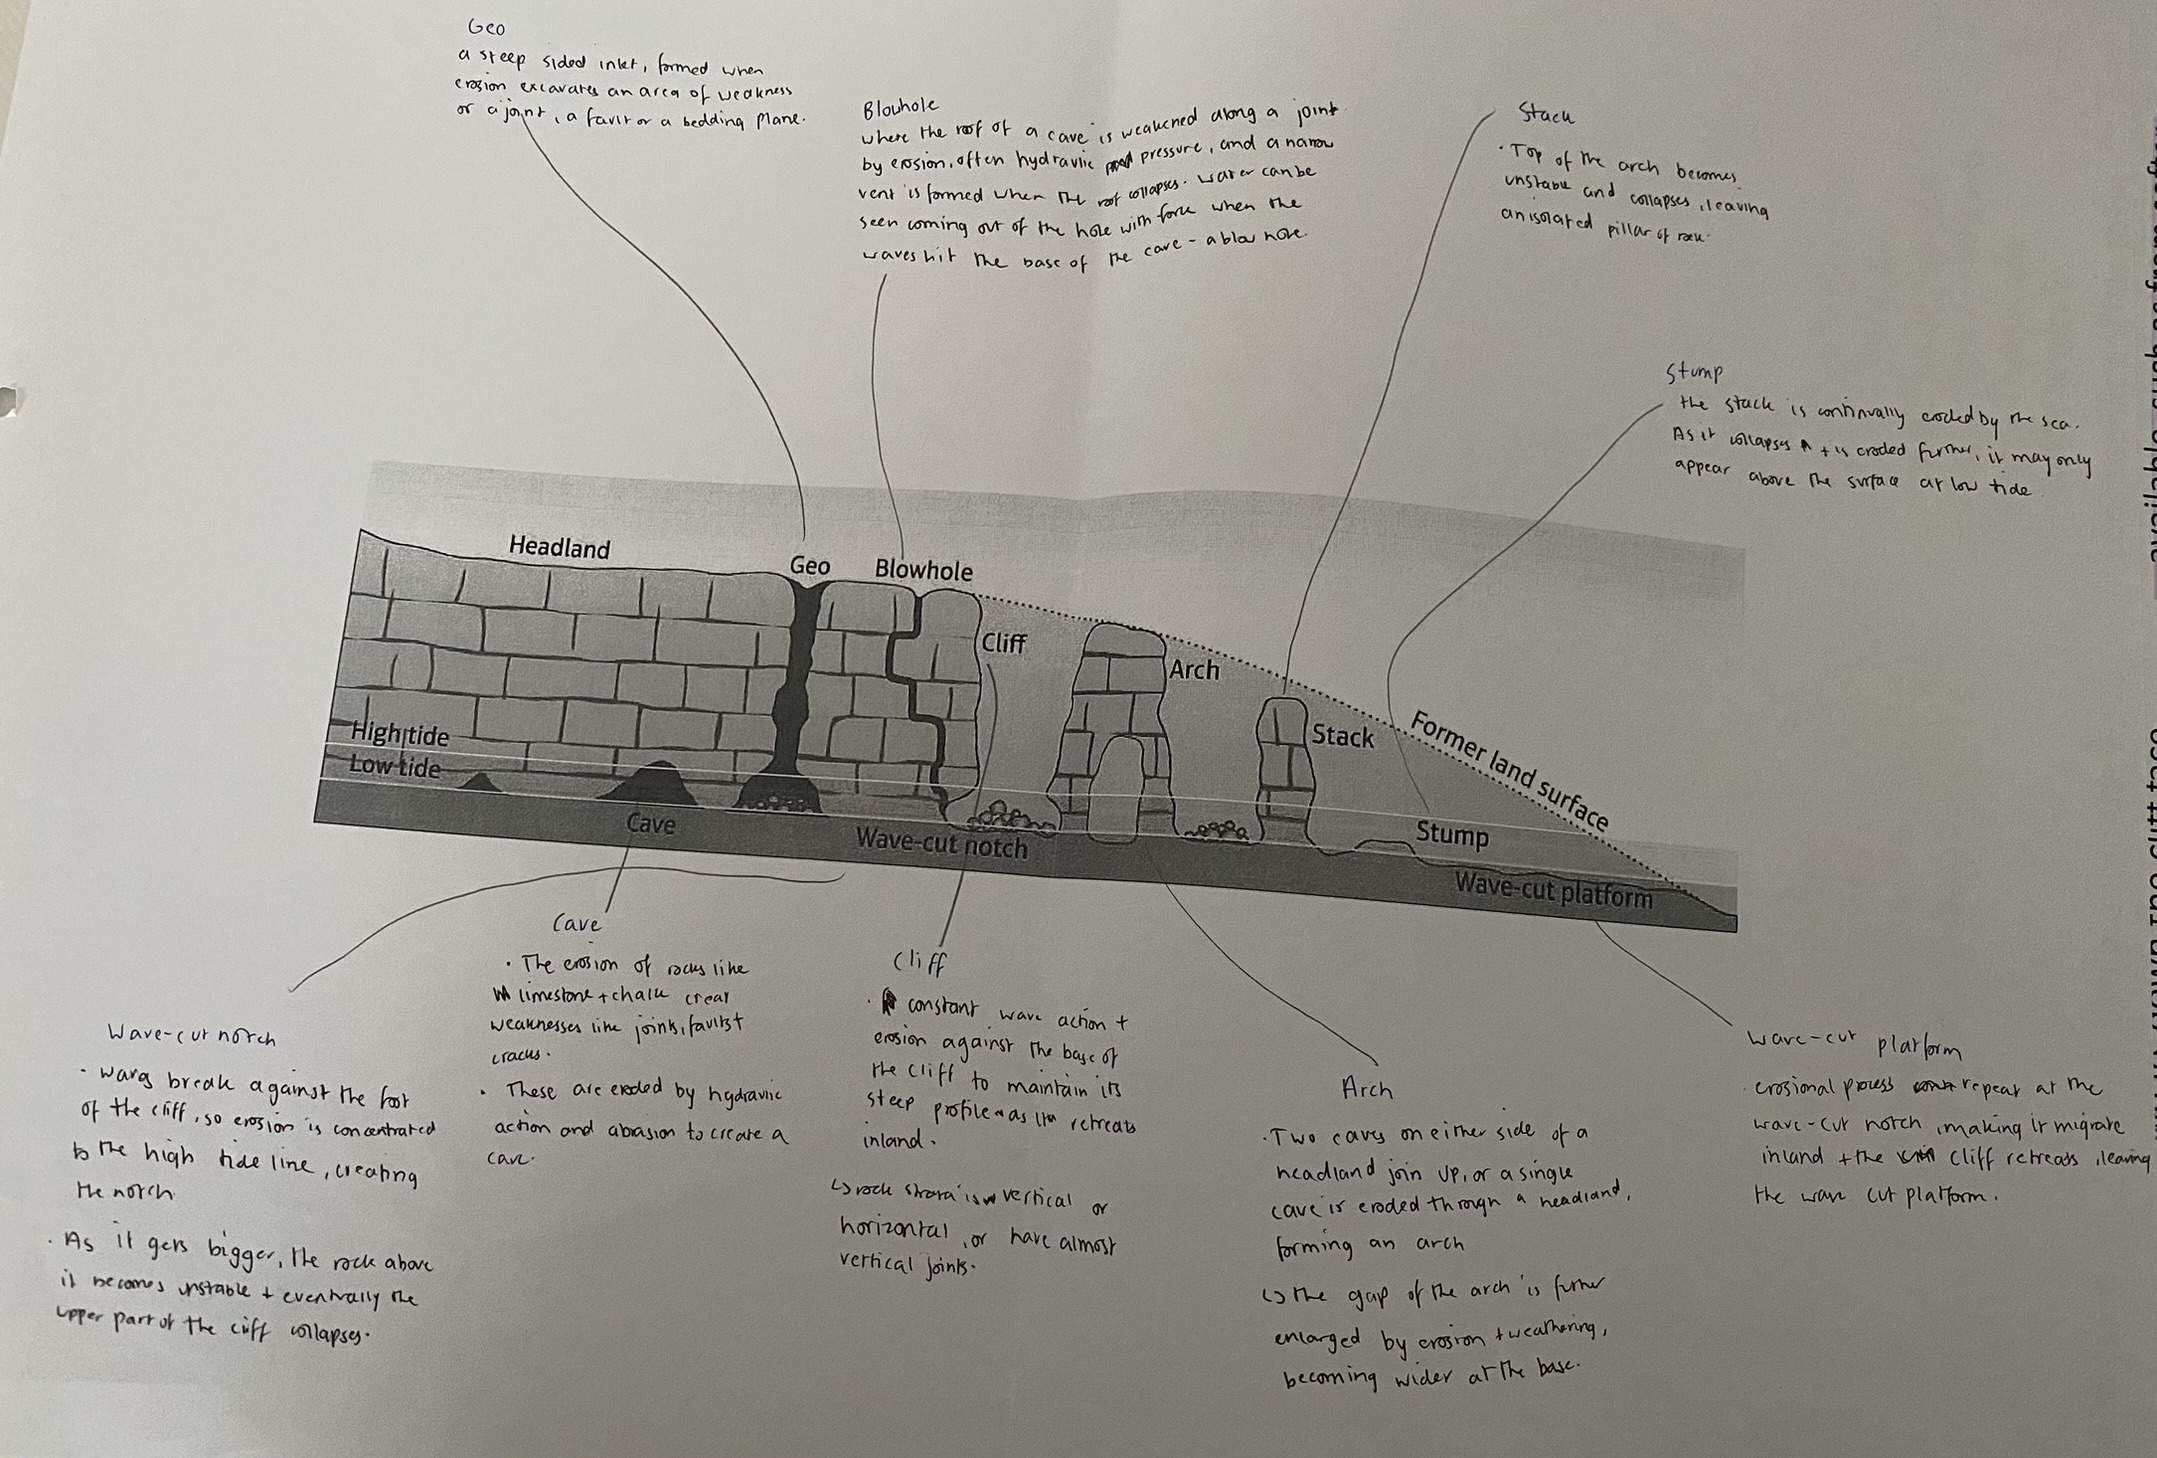 Geo
a steep sided inlet, formed when
erosion excavates an area of weakness
or a joint, a fault or a bedding plane.
Blowhole
where the roof of a cave is weakened along a joint
by erosion, often hydraulic pressure, and a narrow
vent is formed when the roof collapses. Water can be
seen coming out of the hole with force when the
waves hit the base of the cave - a blow hole.
Stack
· Top of the arch becomes
unstable and collapses, leaving
an isolated pillar of rock.
Stump
the stack is continually eroded by the sea.
As it collapses + is eroded further, it may only
appear above the surface at low tide
Headland
Geo
Blowhole
Cliff
Arch
Stack
Former land surface
High tide
Low tide
Cave
Wave-cut notch
Stump
Wave-cut platform
Wave-cut notch
· waves break against the foot
of the cliff, so erosion is concentrated
to the high tide line, creating
the notch
· As it gets bigger, the rock above
it becomes unstable + eventually the
upper part of the cliff collapses.
Cave
· The erosion of rocks like
limestone + chalk creat
weaknesses like joints, faults +
cracks.
· These are eroded by hydraulic
action and abrasion to create a
cave.
Cliff
· constant wave action +
erosion against the base of
the cliff to maintain its
steep profile as it retreats
inland.
↳ rock strata is vertical or
horizontal, or have almost
vertical joints.
Arch
· Two caves on either side of a
headland join up, or a single
cave is eroded through a headland,
forming an arch
↳ the gap of the arch is further
enlarged by erosion + weathering,
becoming wider at the base.
wave-cut platform
· erosional process repeat at the
wave-cut notch, making it migrate
inland + the cliff retreats, leaving
the wave cut platform.